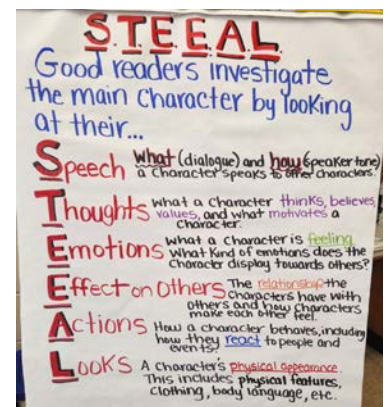 S.T.E.E.A.L.
Good readers investigate
the main character by looking
at their...
Speech what (dialogue) and how (speaker tone)
a character speaks to other characters.
Thoughts what a character thinks, believes,
values, and what motivates a
character.
Emotions what a character is feeling
what kind of emotions does the
character display towards others?
Effect on Others The relationship the
characters have with
others and how characters
make each other feel.
Actions How a character behaves, including
how they react to people and
events?
Looks A character's physical appearance.
This includes physical features,
clothing, body language, etc.